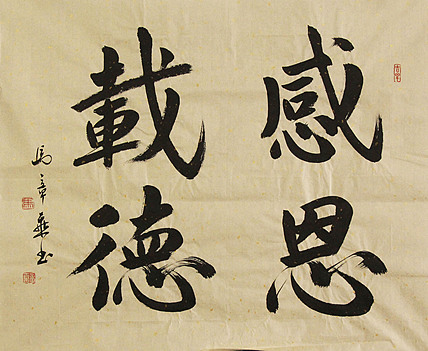 感恩
載德
馬章乘書